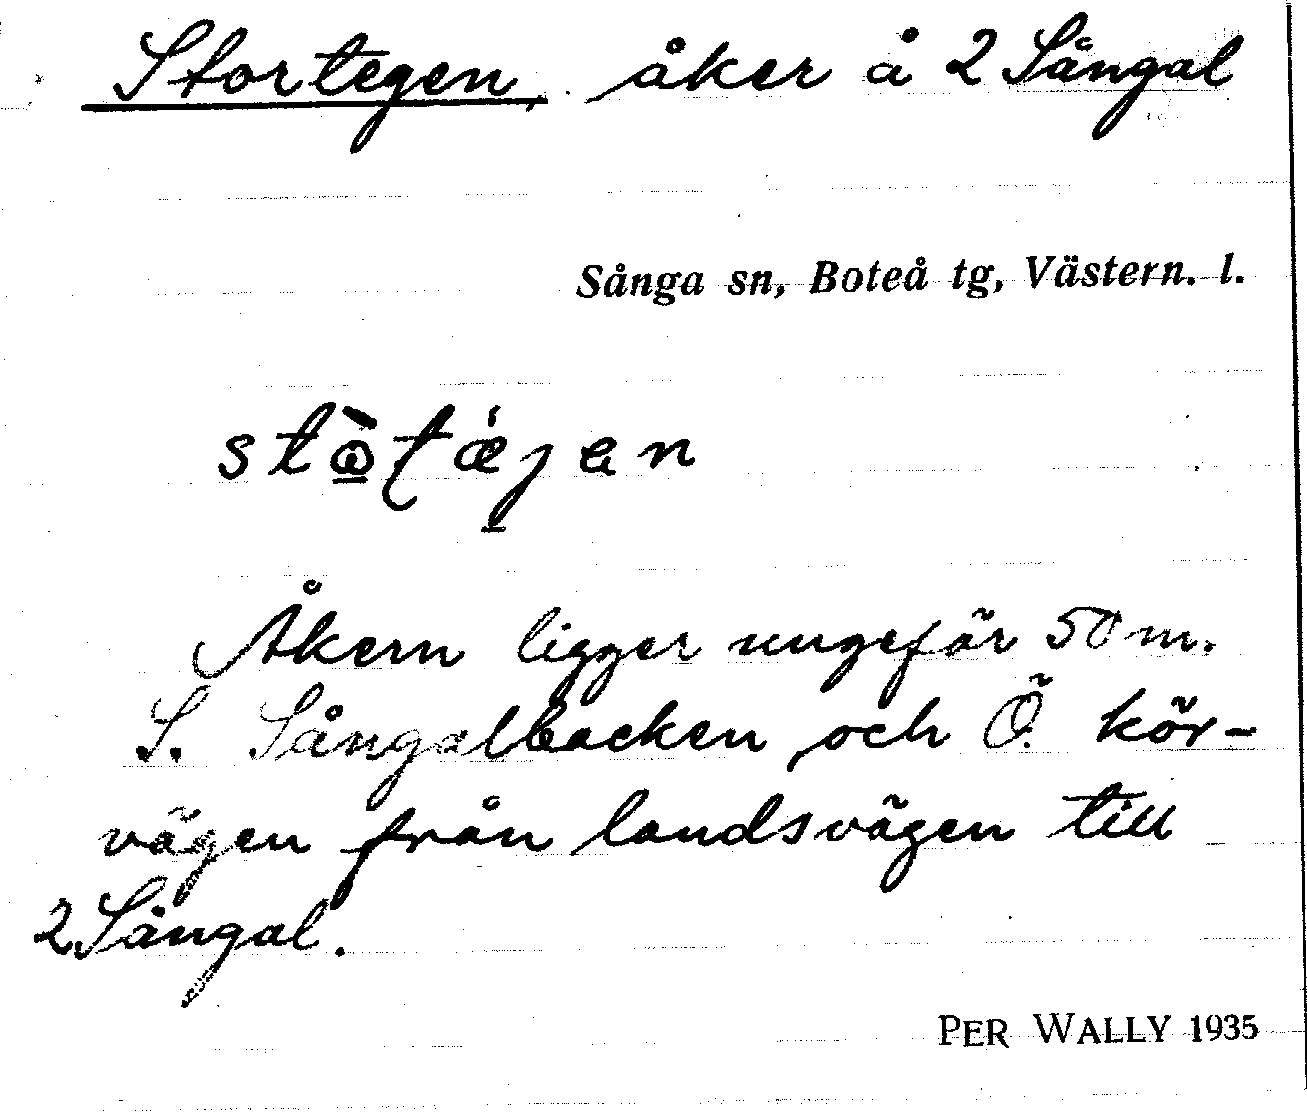 Stortegen, åker å 2 Sångal
Sånga sn, Boteå tg, Västern. l.
Åkern ligger ungefär 50 m.
S. Sångalbacken, och Ö. kör-
vägen från landsvägen till
2 Sångal.
PER WALLY 1935